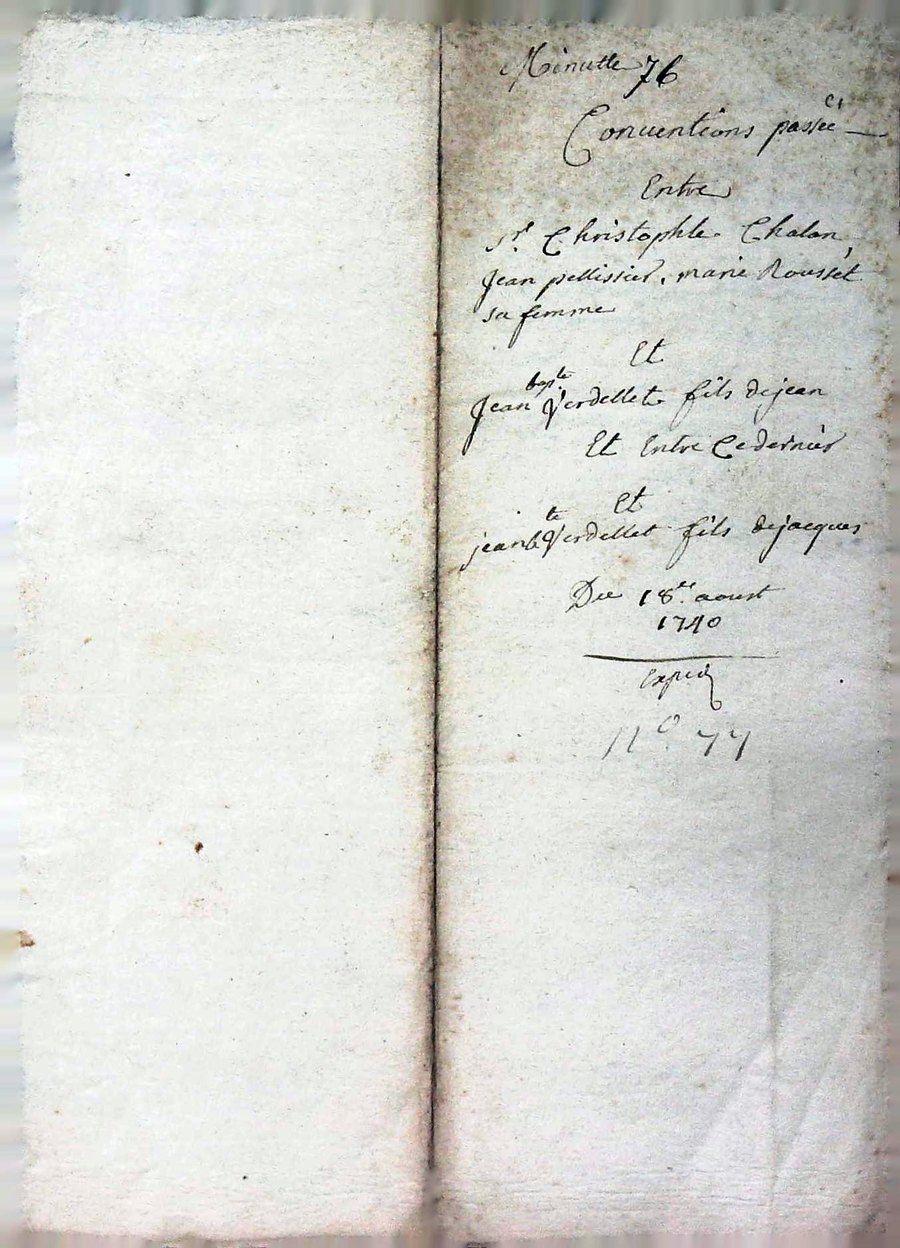 Minutte 76
Conventions passée
Entre
Sr. Christophle Chalan,
Jean pellissier, marie Rousset
sa femme
Et
Jean bapte Verdellet fils dejean
Et Entre Cedernier
Et
jean bte Verdellet fils dejacques
Du 18e. aoust
1740
Expié
No. 77